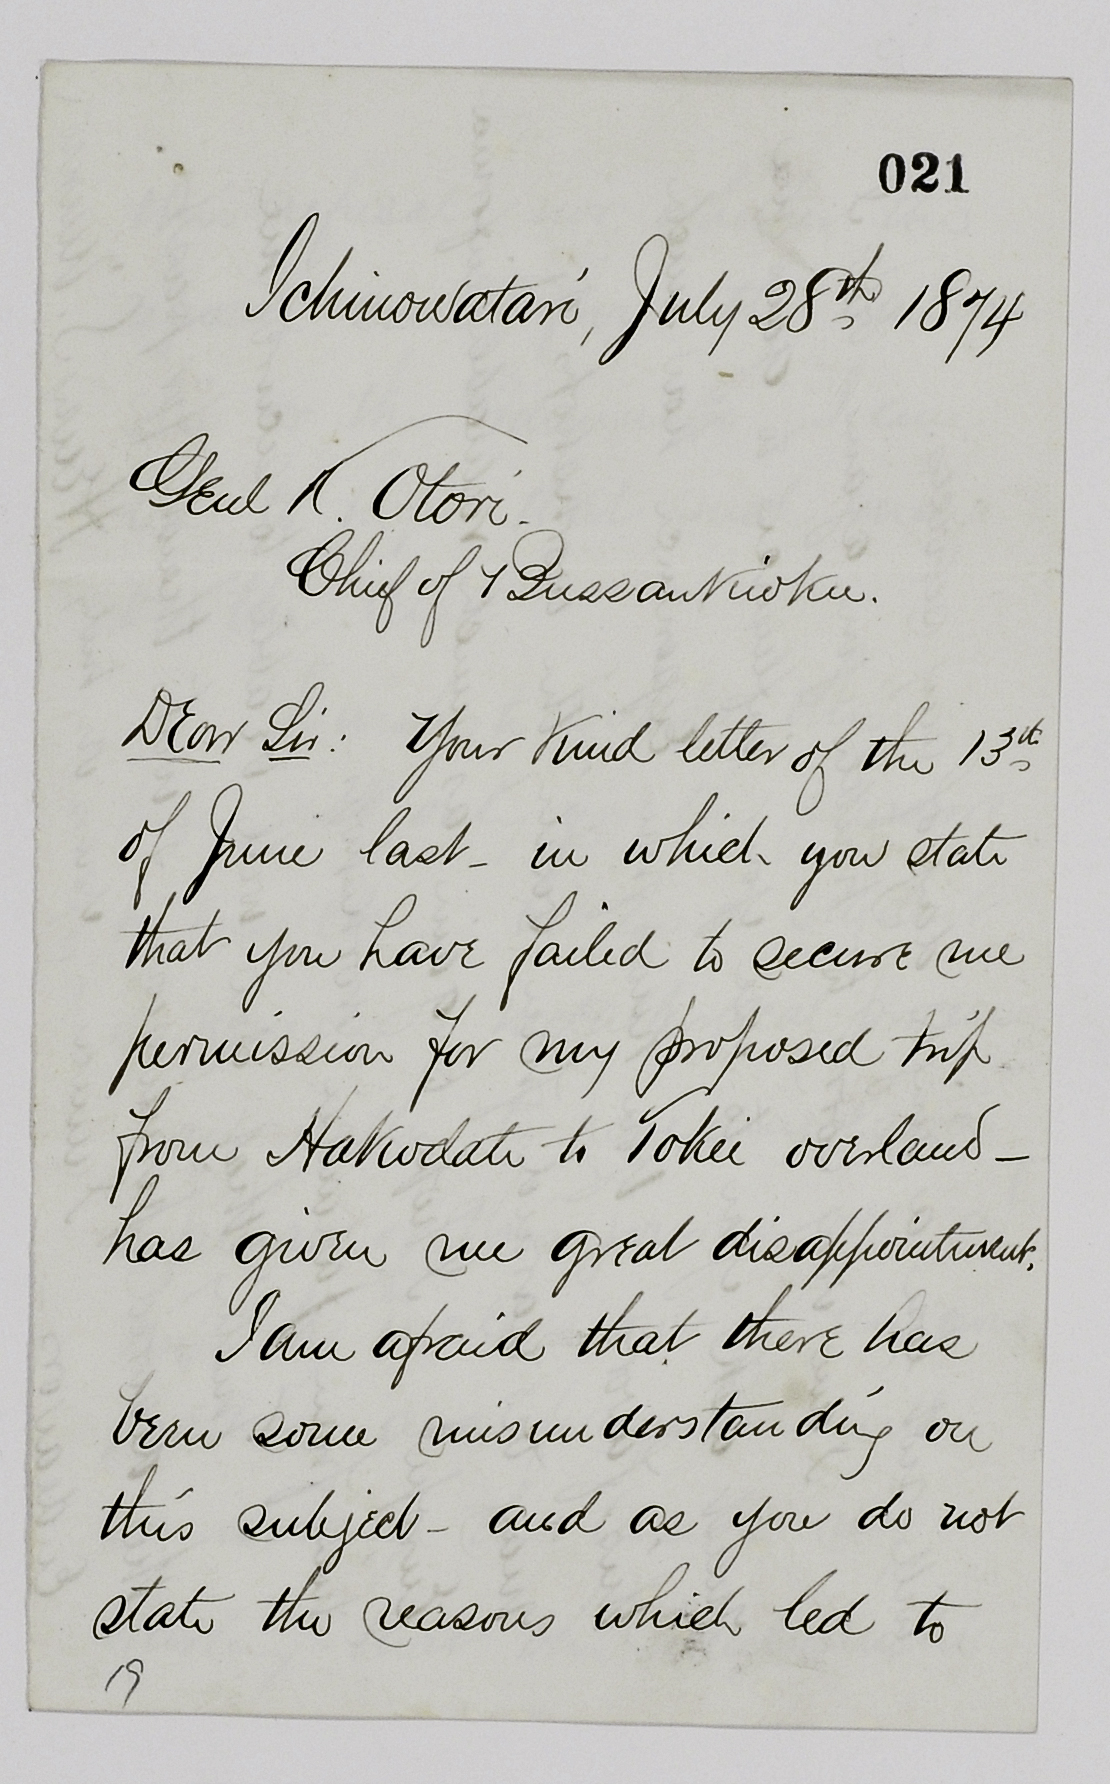 021
Ichinowatari, July 28th 1874
Genl K. Otori.
Chief of Bussankioku.
Dear Sir: Your kind letter of the 13th
of June last - in which you state
that you have failed to secure me
permission for my proposed trip
from Hakodate to Tokei overland -
has given me great disappointment.
I am afraid that there has
been some misunderstanding on
this subject - and as you do not
state the reasons which led to
19